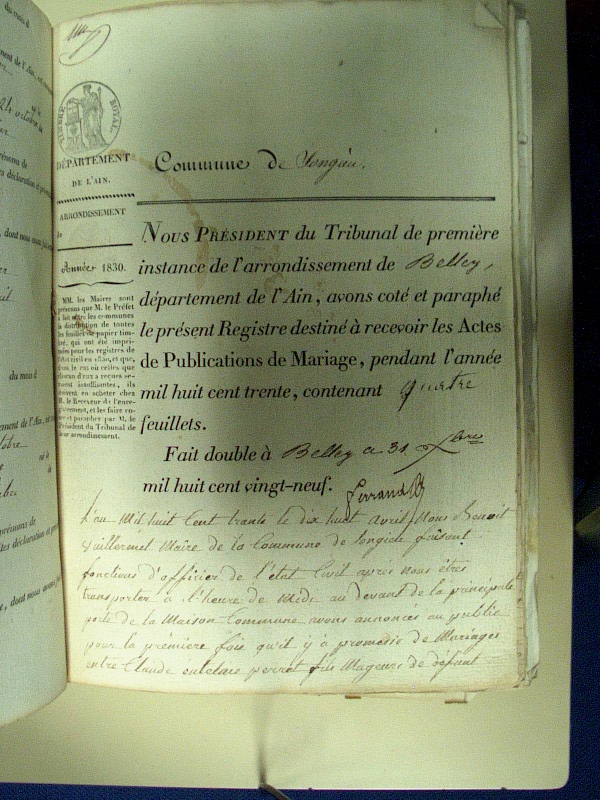 TIMBRE ROYAL
DÉPARTEMENT
DE L'AIN.
ARRONDISSEMENT
de
Année 1830.
MM. les Maires sont
prévenus que M. le Préfet
a fait entre les communes
la distribution de toutes
les feuilles de papier tim-
bré, qui ont été impri-
mées pour les registres de
l'état civil en 1830, et que,
dans le cas où celles que
chacun d'eux a reçues se-
raient insuffisantes, ils
devront en acheter chez
M. le Receveur de l'enre-
gistrement, et les faire co-
ter et parapher par M. le
Président du Tribunal de
leur arrondissement.
Commune de Songieu.
NOUS PRÉSIDENT du Tribunal de première
instance de l'arrondissement de Belley,
département de l'Ain, avons coté et paraphé
le présent Registre destiné à recevoir les Actes
de Publications de Mariage, pendant l'année
mil huit cent trente, contenant quatre
feuillets.
Fait double à Belley a 31 Xbre
mil huit cent vingt-neuf.
L'an Mil huit Cent trante le dix huit avril Nous Benoit
Vuillermet Maire de la Commune de Songieu faisant
fonctions d'officier de l'état Civil après nous être
transporter a l'heure de Midi au devant de la principale
porte de la Maison Commune avons annoncés au public
pour la première fois qu'il y a promesse de Mariages
entre Claude perret fils Mageurs de défunt
24 octobre
du mois d